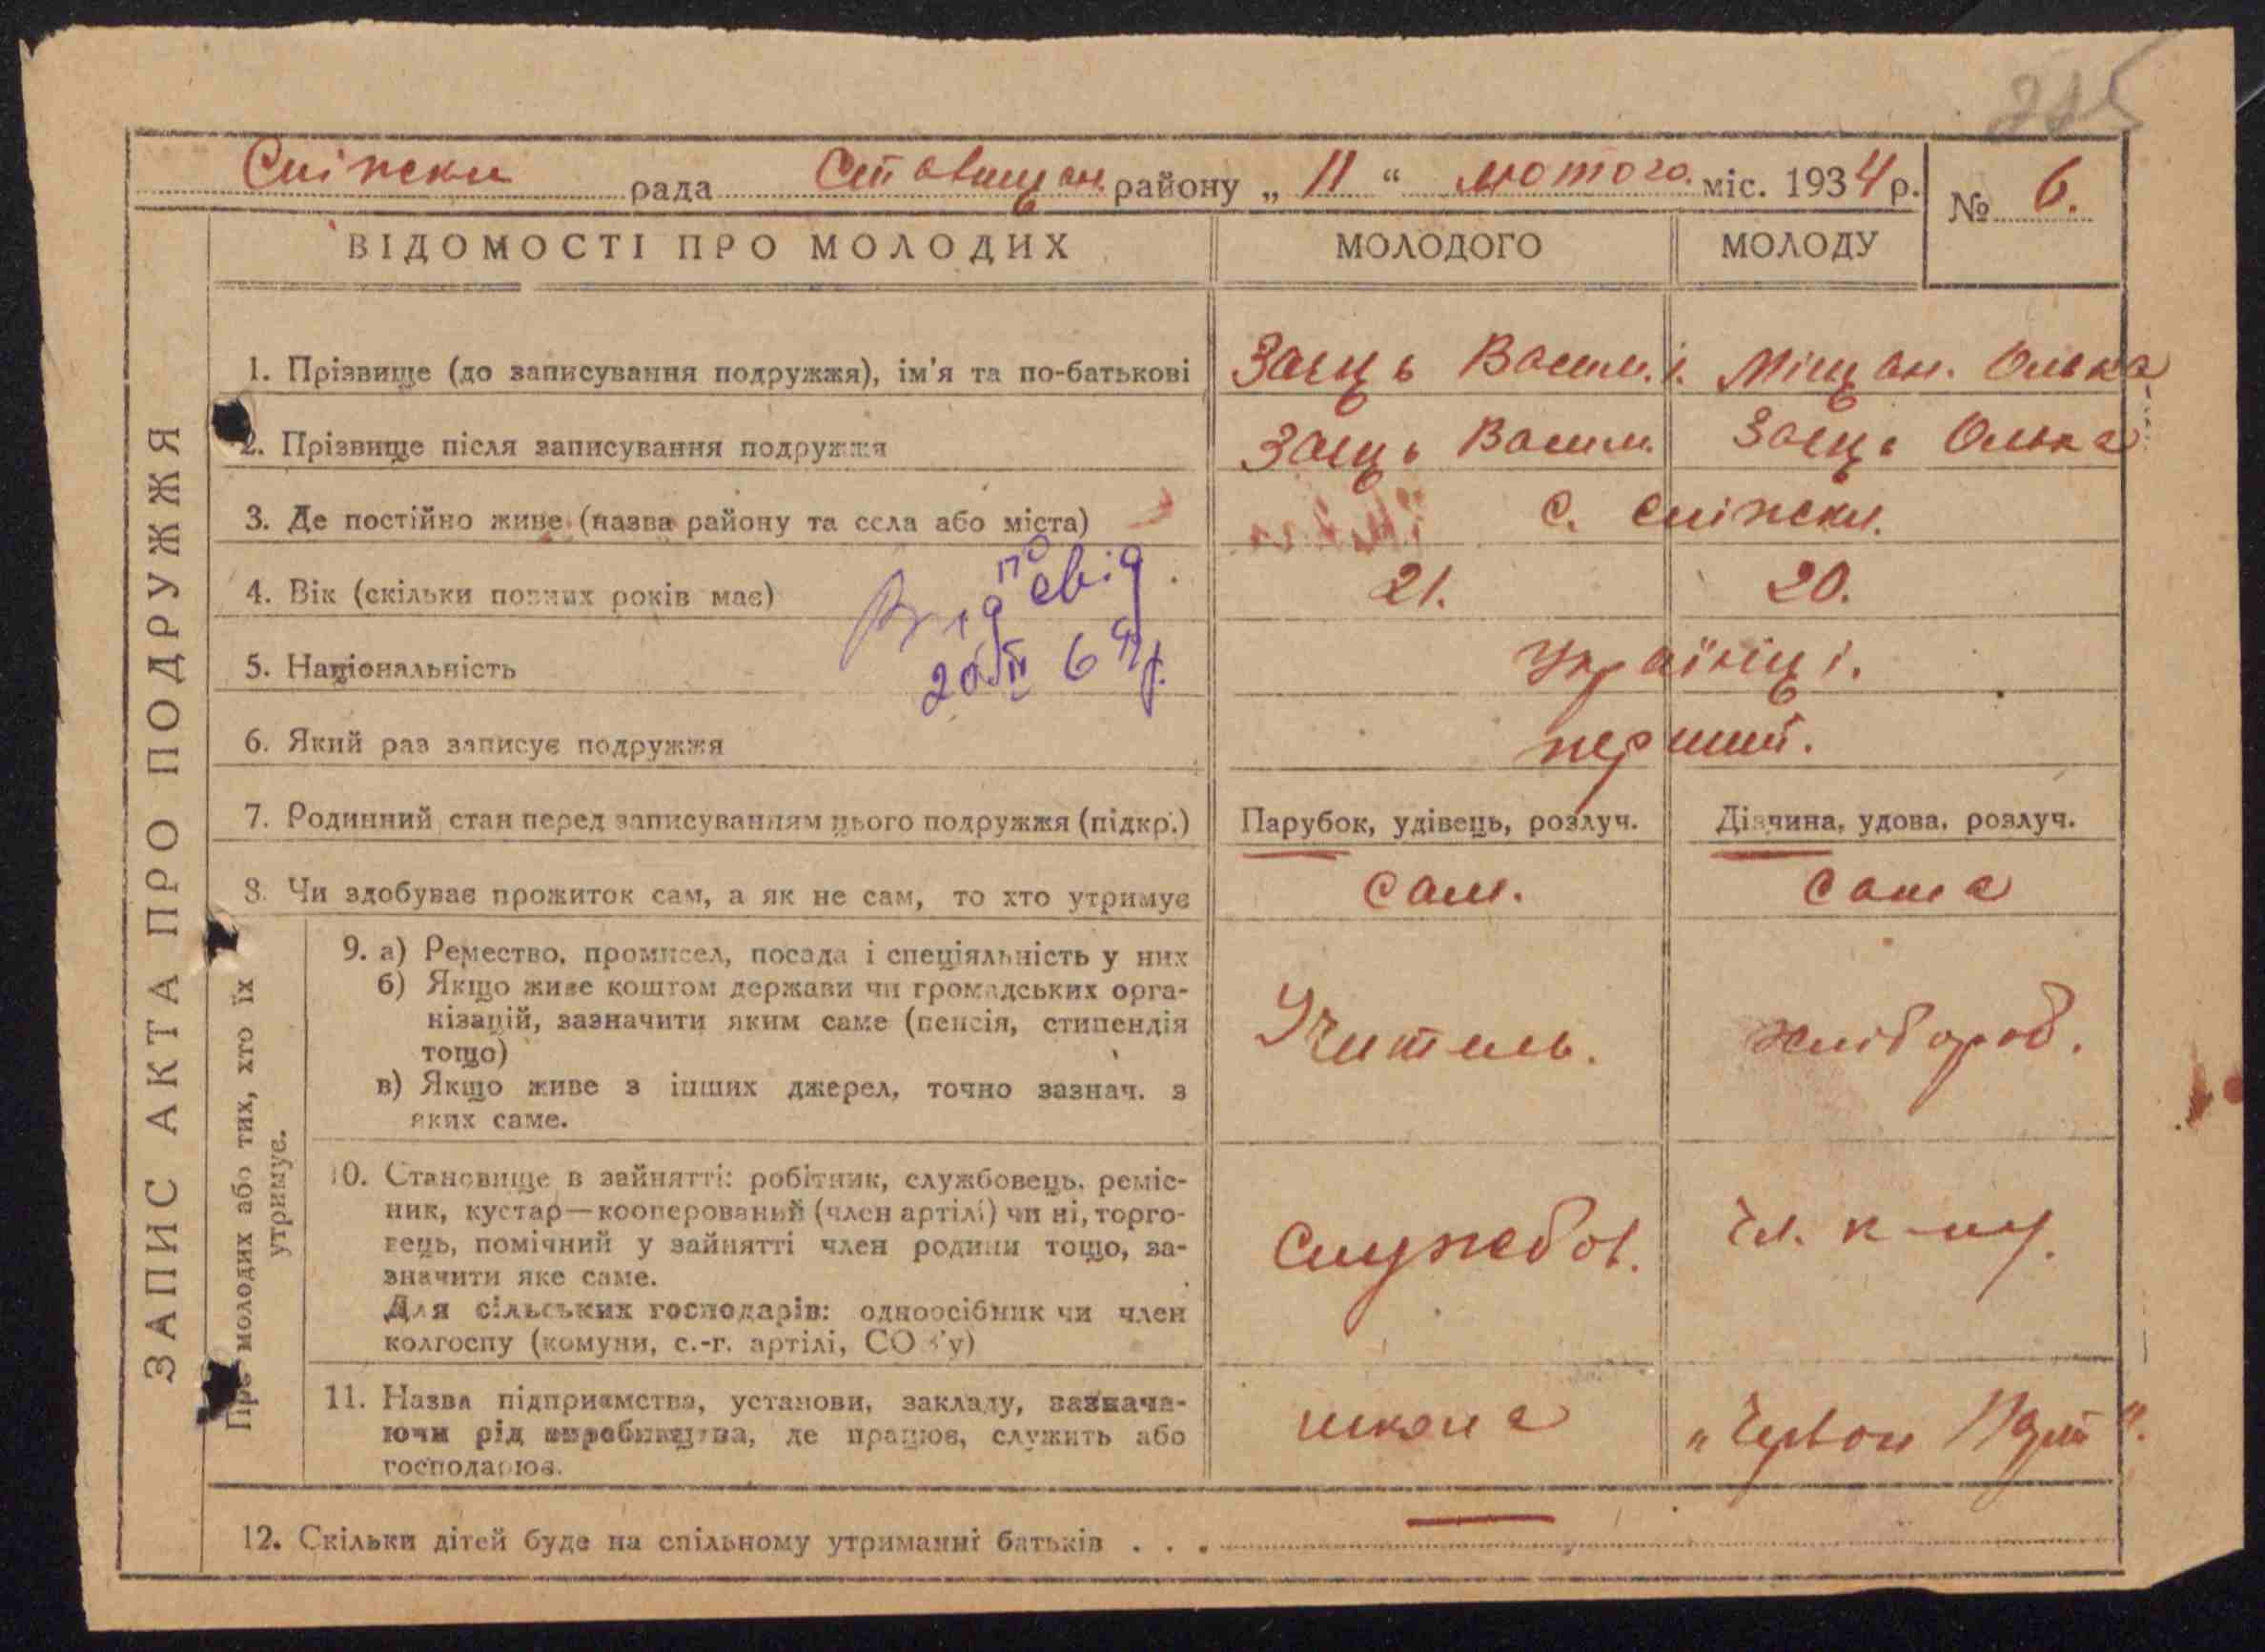 225
Сніжки рада Ставищан. району „ 11 “ лютого міс. 1934 р. № 6.
ЗАПИС АКТА ПРО ПОДРУЖЖЯ
ВІДОМОСТІ ПРО МОЛОДИХ МОЛОДОГО МОЛОДУ
1. Прізвище (до записування подружжя), ім'я та по-батькові Заєць Васил. І. Міщан. Олька
2. Прізвище після записування подружжя Заєць Васил. Заєць Олька
3. Де постійно живе (назва району та села або міста) с. Сніжки.
4. Вік (скільки повних років має) 21. 20.
5. Національність Українці.
6. Який раз записує подружжя перший.
7. Родинний стан перед записуванням цього подружжя (підкр.) Парубок, удівець, розлуч. Дівчина, удова, розлуч.
8. Чи здобуває прожиток сам, а як не сам, то хто утримує Сам. Сама
Про молодих або тих, хто їх
утримує.
9. а) Ремество, промисел, посада і спеціяльність у них
б) Якщо живе коштом держави чи громадських орга-
нізацій, зазначити яким саме (пенсія, стипендія
тощо)
в) Якщо живе з інших джерел, точно зазнач. з
яких саме.
Учитель. хлібороб.
10. Становище в зайнятті: робітник, службовець, реміс-
ник, кустар—кооперований (член артілі) чи ні, торго-
вець, помічний у зайнятті член родини тощо, за-
значити яке саме.
Для сільських господарів: одноосібник чи член
колгоспу (комуни, с.-г. артілі, СОЗ'у)
Службов. Чл. к-пу.
11. Назва підприємства, установи, закладу, зазнача-
ючи рід виробництва, де працює, служить або
господарює.
школа „Червон
12. Скільки дітей буде на спільному утриманні батьків . . . —